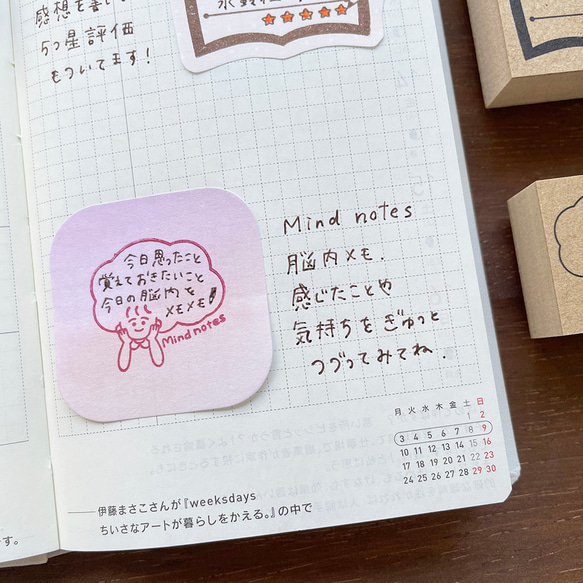 感想を書い
5つ星評価
もついてます!
今日思ったこと
覚えておきたいこと
今日の脳内を
メモメモ!
Mind notes
Mind notes
脳内メモ.
感じたことや
気持ちをぎゅっと
つづってみてね.
月 火 水 木 金 土 日
1 2
3 4 5 6 7 8 9
10 11 12 13 14 15 16
17 18 19 20 21 22 23
24 25 26 27 28 29 30
伊藤まさこさんが『weeksdays
ちいさなアートが暮らしをかえる。』の中で
です。